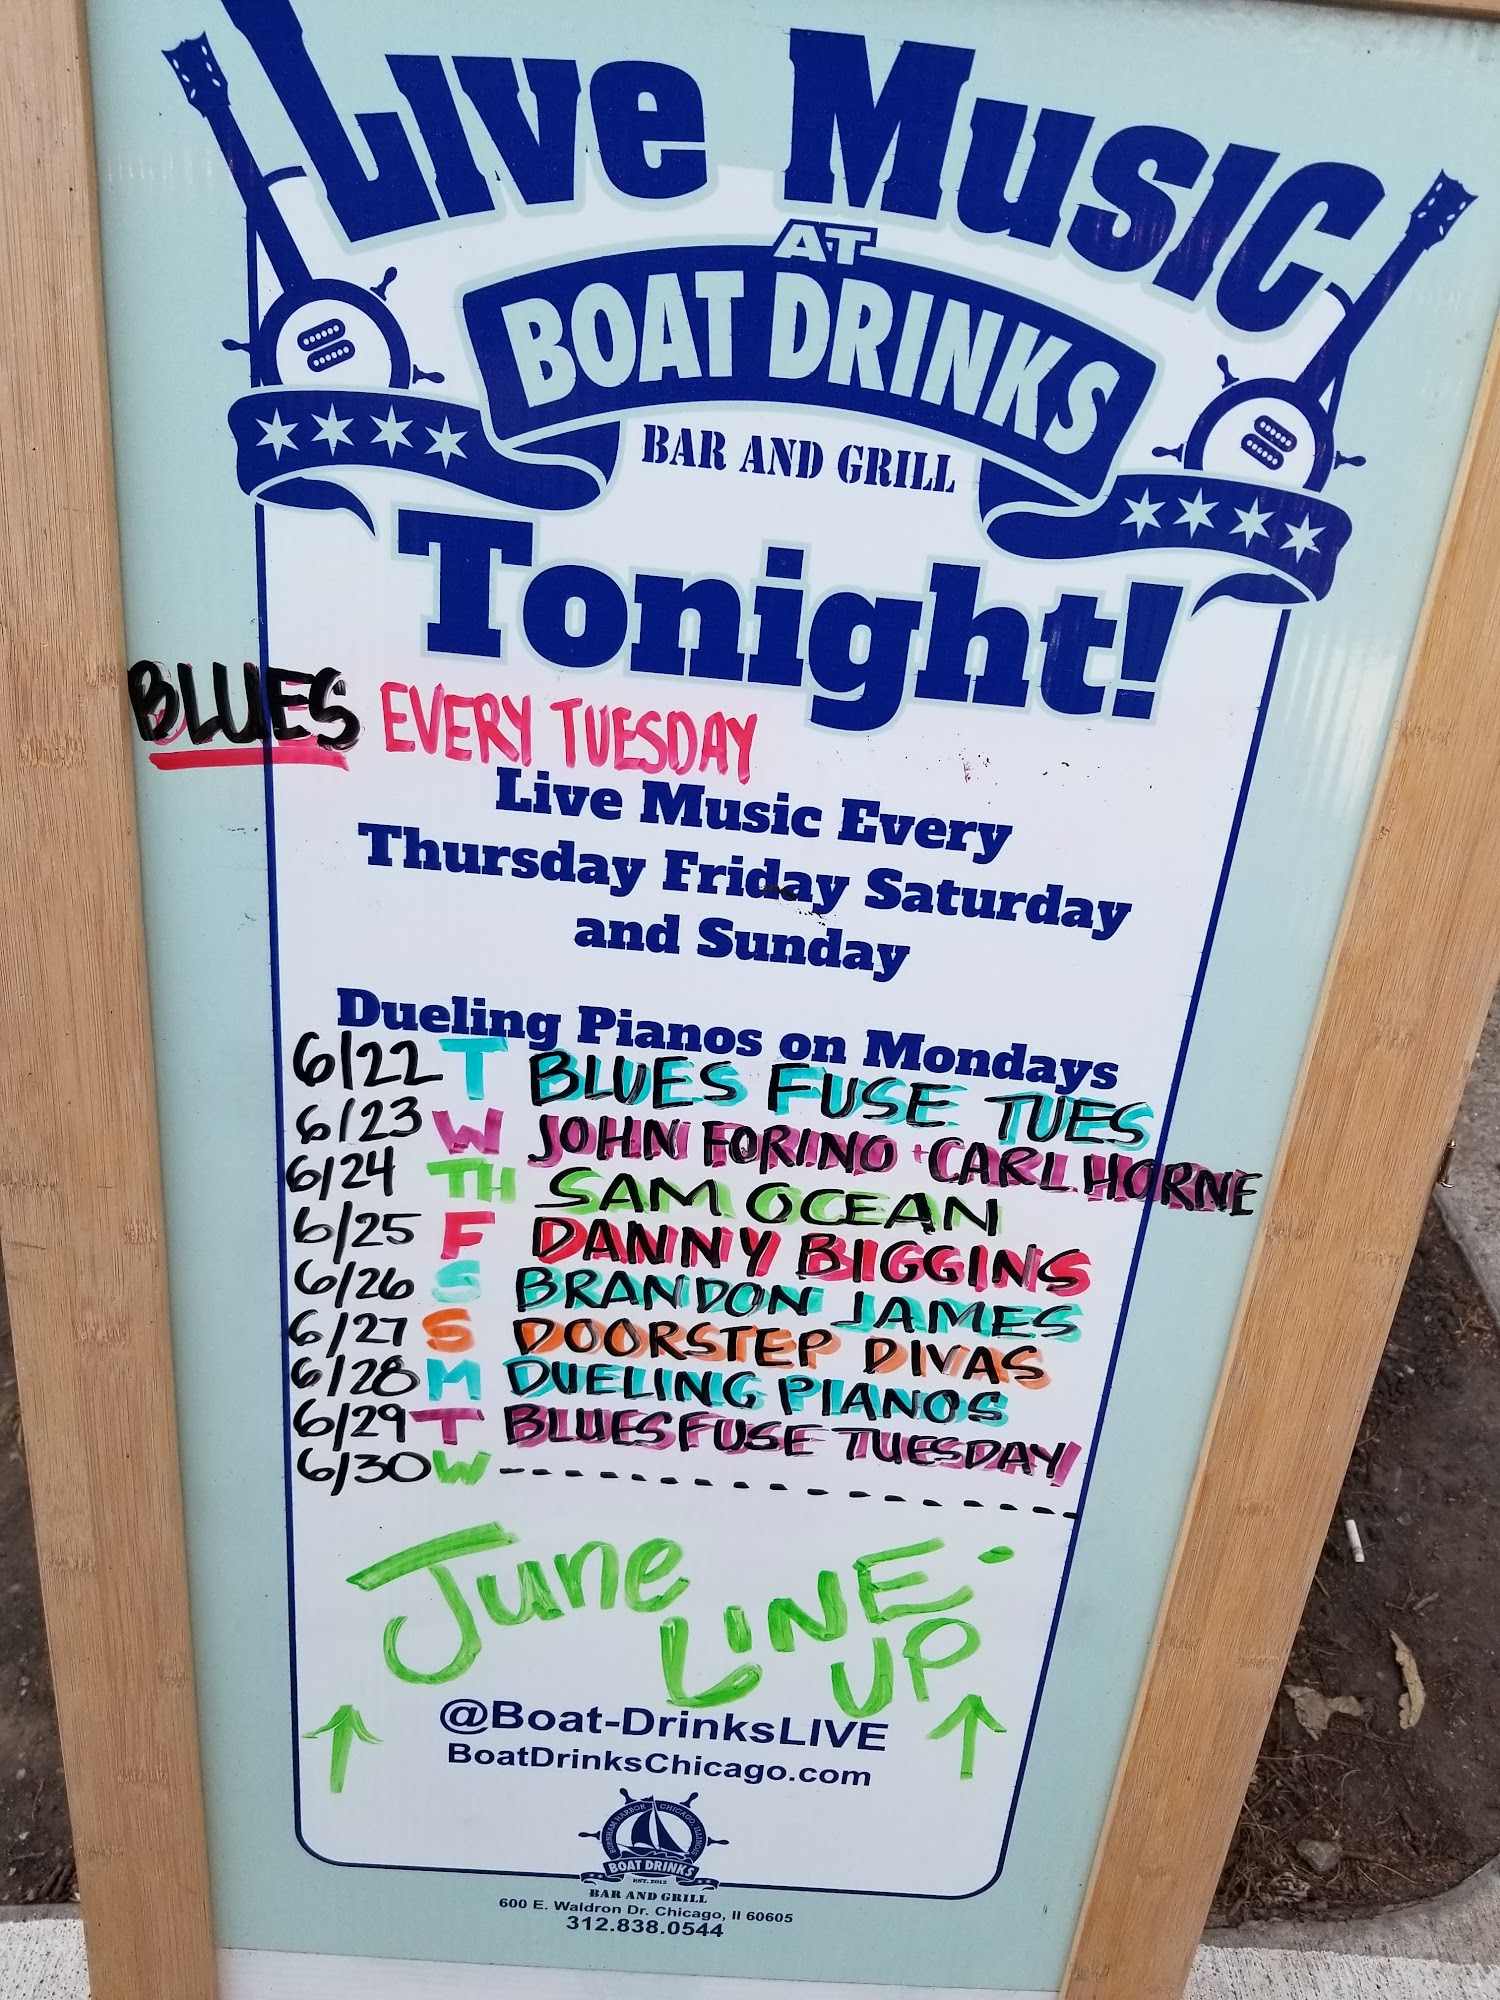 Live Music
AT
BOAT DRINKS
BAR AND GRILL
Tonight!
BLUES EVERY TUESDAY
Live Music Every
Thursday Friday Saturday
and Sunday
Dueling Pianos on Mondays
6/22 T BLUES FUSE TUES
6/23 W JOHN FORINO + CARL HORNE
6/24 TH SAM OCEAN
6/25 F DANNY BIGGINS
6/26 S BRANDON JAMES
6/27 S DOORSTEP DIVAS
6/28 M DUELING PIANOS
6/29 T BLUES FUSE TUESDAY
6/30 W ---------------
June LINE-
UP
@Boat-DrinksLIVE
BoatDrinksChicago.com
BURNHAM HARBOR CHICAGO, ILLINOIS
BOAT DRINKS
EST. 2012
BAR AND GRILL
600 E. Waldron Dr. Chicago, Il 60605
312.838.0544